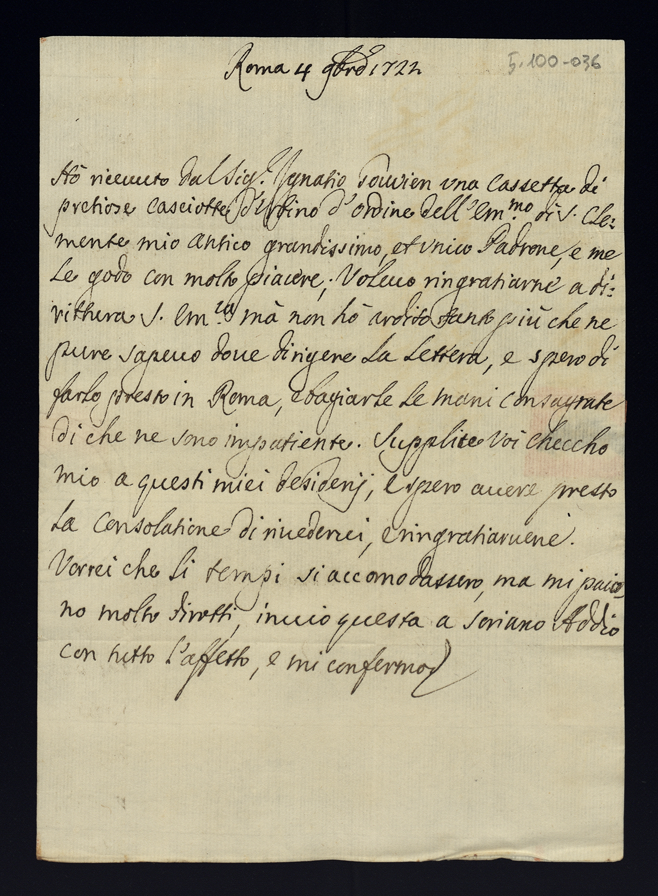 Roma 4 9bre 1722
5.100-036
Hò riceuuto dal Sig.r Ignatio vna Cassetta di
pretiose Casciotte d'Urbino d'ordine dell'Em.mo di S. Cle:
mente mio antico grandissimo, et vnico Padrone, e me
le godo con molto piacere; Voleuo ringratiarne a di:
rittura S. Em.za mà non hò ardito tanto più che ne
pure sapeuo doue dirigere la lettera, e spero di
farlo presto in Roma, e bagiarle le mani consagrate
di che ne sono impatiente. Supplite Voi Checcho
mio a questi miei desiderij, e spero auere presto
la Consolatione di riuederci, e ringratiaruene.
Vorrei che li tempi si accomodassero, ma mi paio
no molto dirotti, inuio questa a Soriano Addio
con tutto l'affetto, e mi confermo